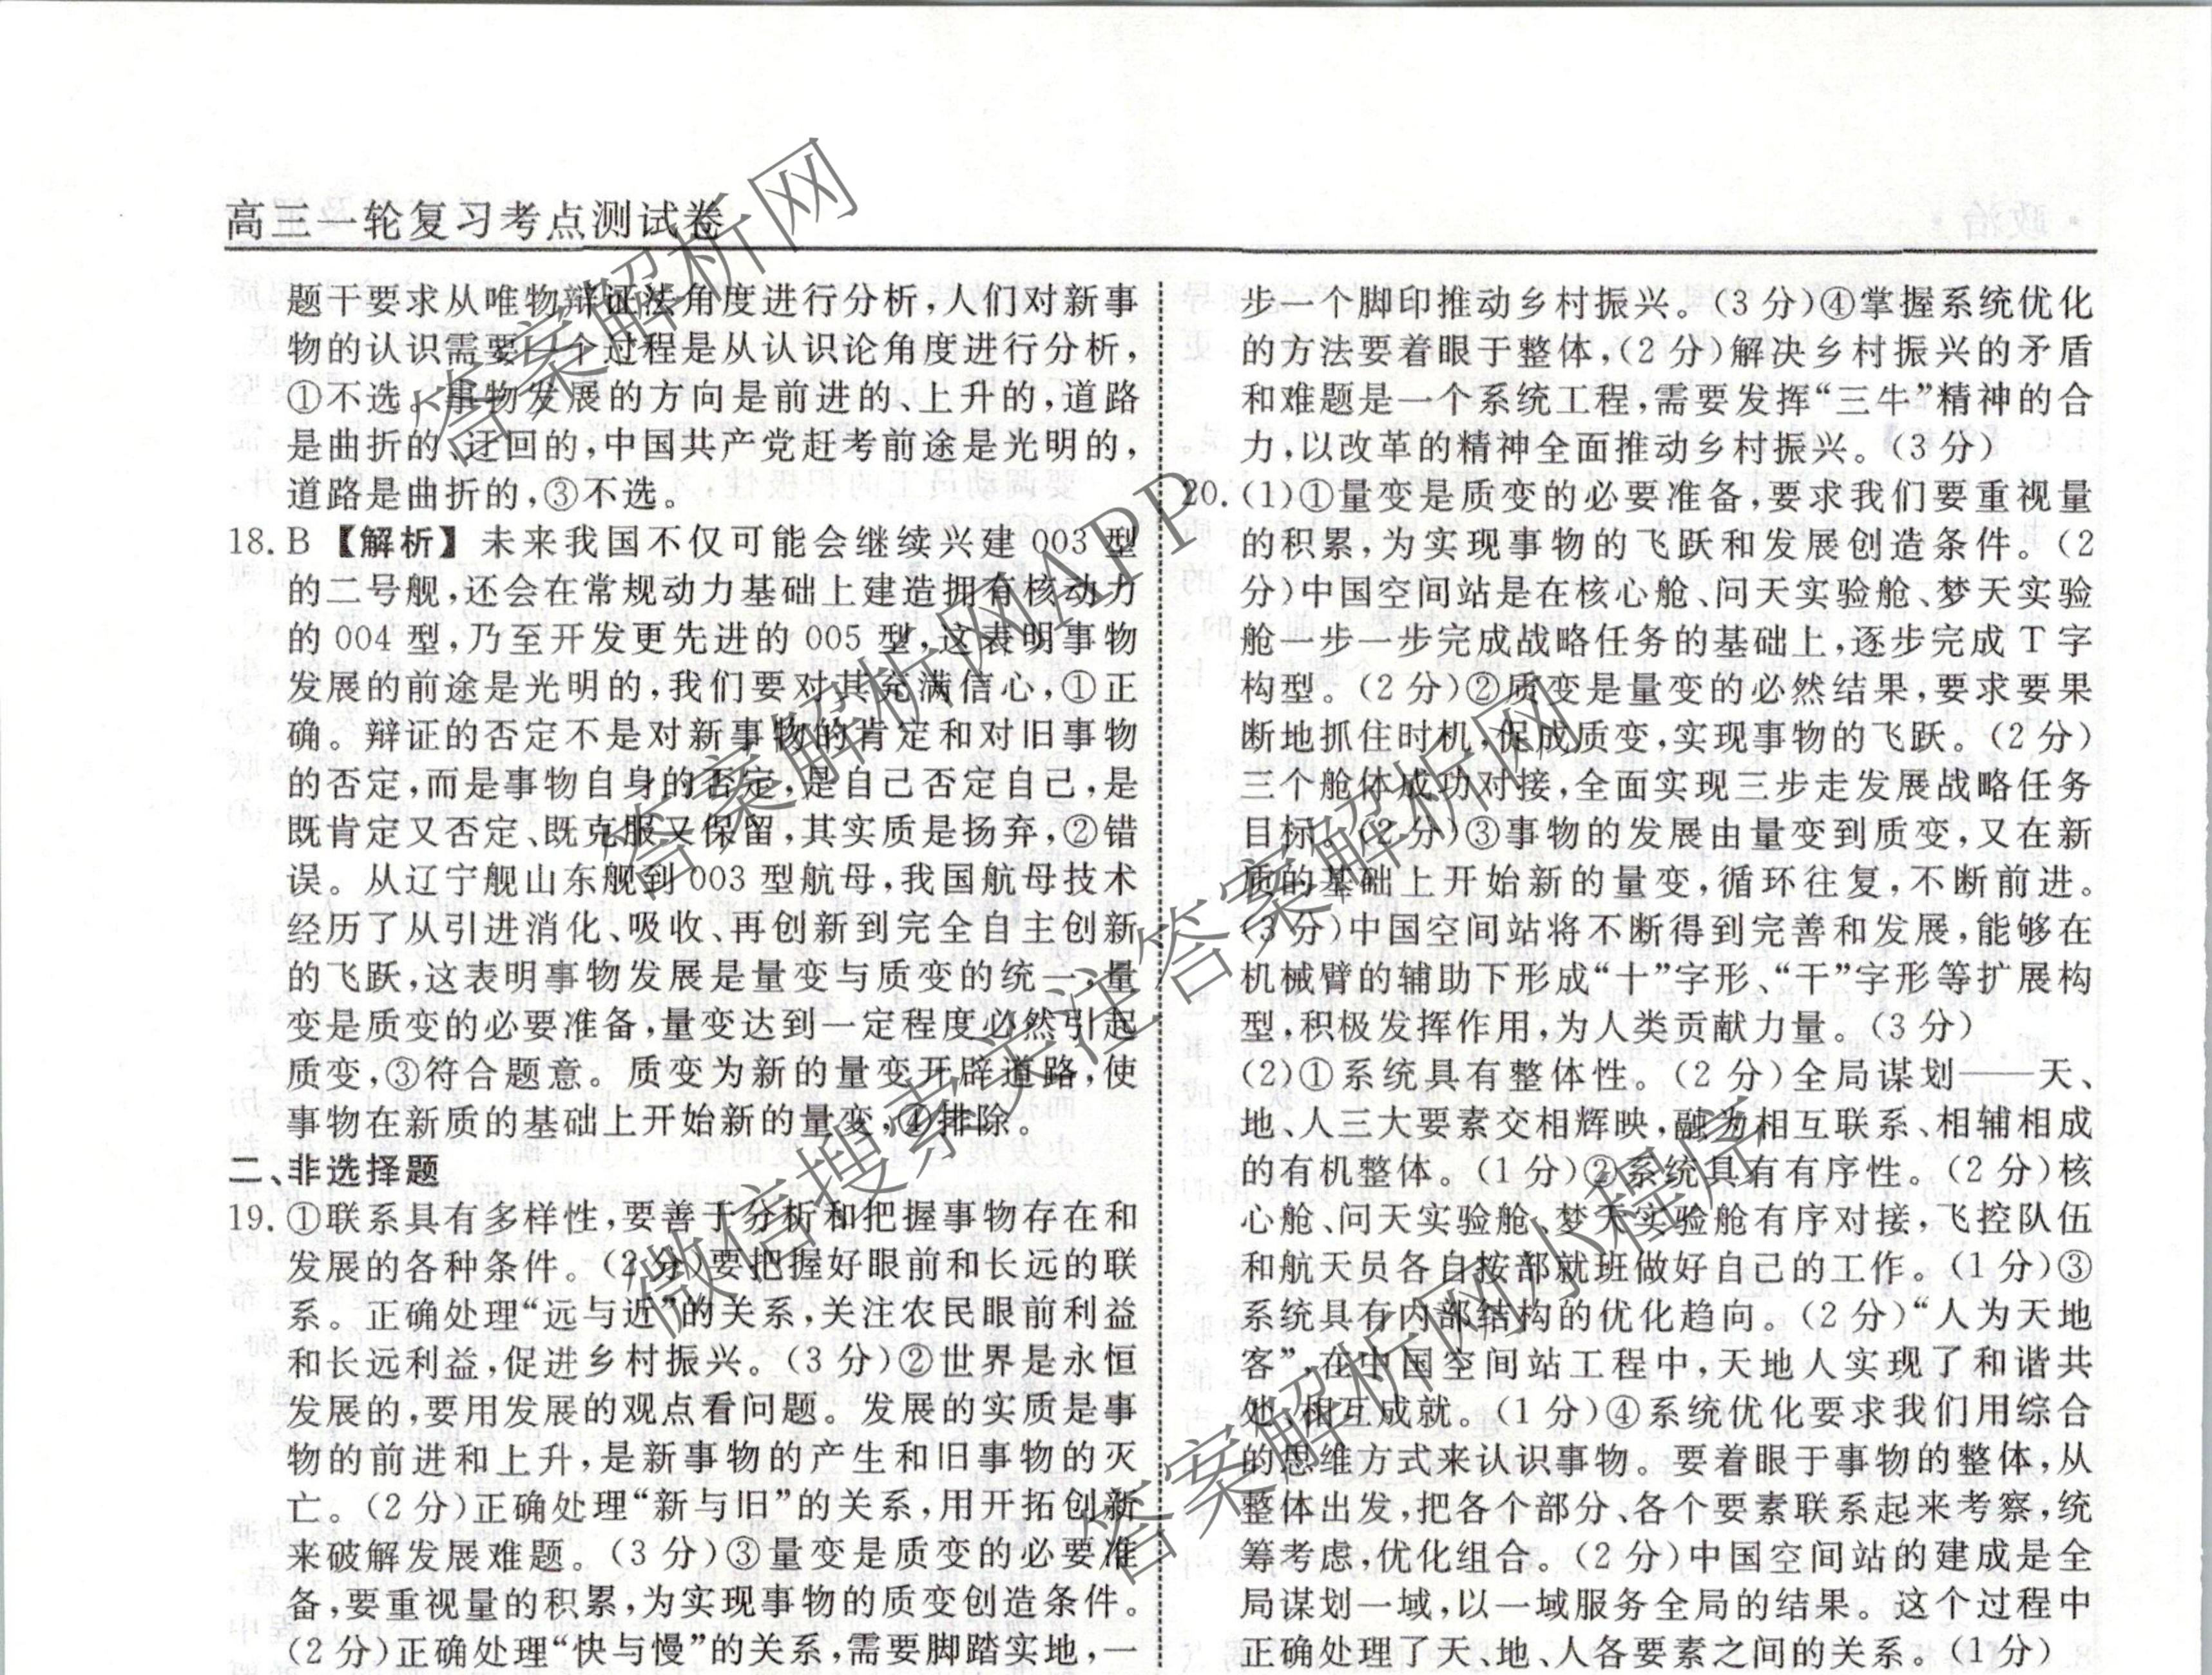 高三一轮复习考点测试卷
题干要求从唯物辩证法角度进行分析,人们对新事
物的认识需要一个过程是从认识论角度进行分析,
①不选。事物发展的方向是前进的、上升的,道路
是曲折的、迂回的,中国共产党赶考前途是光明的,
道路是曲折的,③不选。
18. B 【解析】 未来我国不仅可能会继续兴建 003 型
的二号舰,还会在常规动力基础上建造拥有核动力
的 004 型,乃至开发更先进的 005 型,这表明事物
发展的前途是光明的,我们要对其充满信心,①正
确。辩证的否定不是对新事物的肯定和对旧事物
的否定,而是事物自身的否定,是自己否定自己,是
既肯定又否定、既克服又保留,其实质是扬弃,②错
误。从辽宁舰山东舰到 003 型航母,我国航母技术
经历了从引进消化、吸收、再创新到完全自主创新
的飞跃,这表明事物发展是量变与质变的统一,量
变是质变的必要准备,量变达到一定程度必然引起
质变,③符合题意。质变为新的量变开辟道路,使
事物在新质的基础上开始新的量变,④排除。
二、非选择题
19. ①联系具有多样性,要善于分析和把握事物存在和
发展的各种条件。(2分)要把握好眼前和长远的联
系。正确处理“远与近”的关系,关注农民眼前利益
和长远利益,促进乡村振兴。(3分)②世界是永恒
发展的,要用发展的观点看问题。发展的实质是事
物的前进和上升,是新事物的产生和旧事物的灭
亡。(2分)正确处理“新与旧”的关系,用开拓创新
来破解发展难题。(3分)③量变是质变的必要准
备,要重视量的积累,为实现事物的质变创造条件。
(2分)正确处理“快与慢”的关系,需要脚踏实地,一
步一个脚印推动乡村振兴。(3分)④掌握系统优化
的方法要着眼于整体,(2分)解决乡村振兴的矛盾
和难题是一个系统工程,需要发挥“三牛”精神的合
力,以改革的精神全面推动乡村振兴。(3分)
20. (1)①量变是质变的必要准备,要求我们要重视量
的积累,为实现事物的飞跃和发展创造条件。(2
分)中国空间站是在核心舱、问天实验舱、梦天实验
舱一步一步完成战略任务的基础上,逐步完成 T 字
构型。(2分)②质变是量变的必然结果,要求要果
断地抓住时机,促成质变,实现事物的飞跃。(2分)
三个舱体成功对接,全面实现三步走发展战略任务
目标。(2分)③事物的发展由量变到质变,又在新
质的基础上开始新的量变,循环往复,不断前进。
(3分)中国空间站将不断得到完善和发展,能够在
机械臂的辅助下形成“十”字形、“干”字形等扩展构
型,积极发挥作用,为人类贡献力量。(3分)
(2)①系统具有整体性。(2分)全局谋划——天、
地、人三大要素交相辉映,融为相互联系、相辅相成
的有机整体。(1分)②系统具有有序性。(2分)核
心舱、问天实验舱、梦天实验舱有序对接,飞控队伍
和航天员各自按部就班做好自己的工作。(1分)③
系统具有内部结构的优化趋向。(2分)“人为天地
客”,在中国空间站工程中,天地人实现了和谐共
处,相互成就。(1分)④系统优化要求我们用综合
的思维方式来认识事物。要着眼于事物的整体,从
整体出发,把各个部分、各个要素联系起来考察,统
筹考虑,优化组合。(2分)中国空间站的建成是全
局谋划一域,以一域服务全局的结果。这个过程中
正确处理了天、地、人各要素之间的关系。(1分)
答案解析网
答案解析网APP
微信搜索关注答案解析网
答案解析网小程序